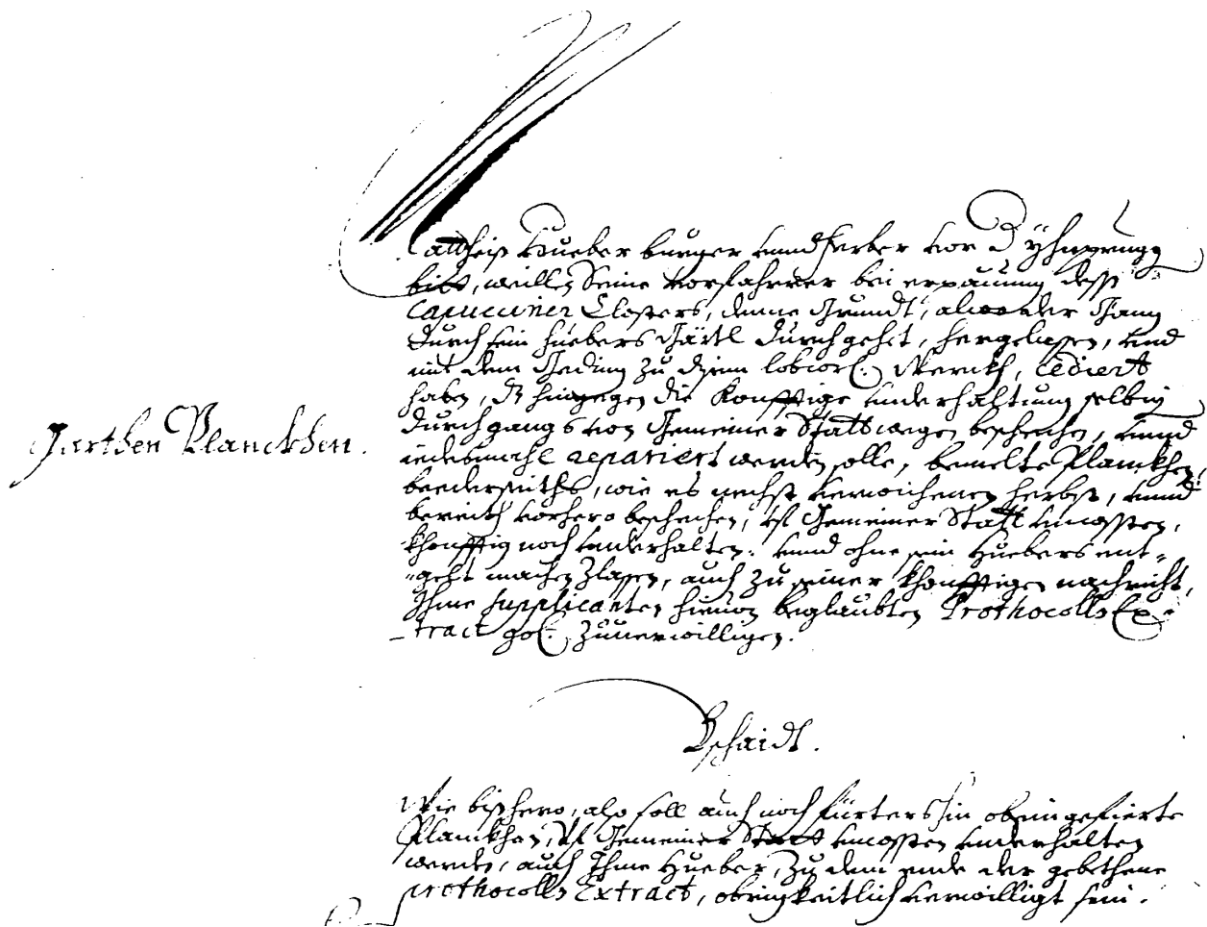 Mattheiß Hueber burger unnd ferber vor D yhnprugg
bitt, weillen Seine vorfahrer bei erpauung deß
Capuciner Closters, denne Grundt, alwo der Gang
durch sein Huebers Gärtl durchgehet, hergelassen, und
mit dem Geding zu disem lobwol: Werckh, cediert
haben, dz hingegen die konfftige underhaltung selbig
durchgangs von Gemeiner Statt wegen beschechen, unnd
iedesmahl repariert werden solle, bemelte Planckhen,
Garthen Planckhen.
beederseiths, wie es nechst verwichenen herbst, unnd
bereith vorhero beschechen, uf Gemeiner Statt uncossten,
khonfftig noch underhalten: unnd ohne sein Huebers ent-
-gelt machen zlassen, auch zu seiner khonfftigen nachricht,
Ihme supplicanten hievon beglaubten Prothocolls Ex-
-tract gol: zuverwilligen.
Bschaidt.
Wie bißhero, also soll auch noch fürters hin obeingefierte
Planckhen, uf Gemeiner Statt uncossten underhalten
werden, auch Ihme Hueber, zu dem ende der gebethene
prothocolls Extract, obrigkeitlich verwilligt sein.